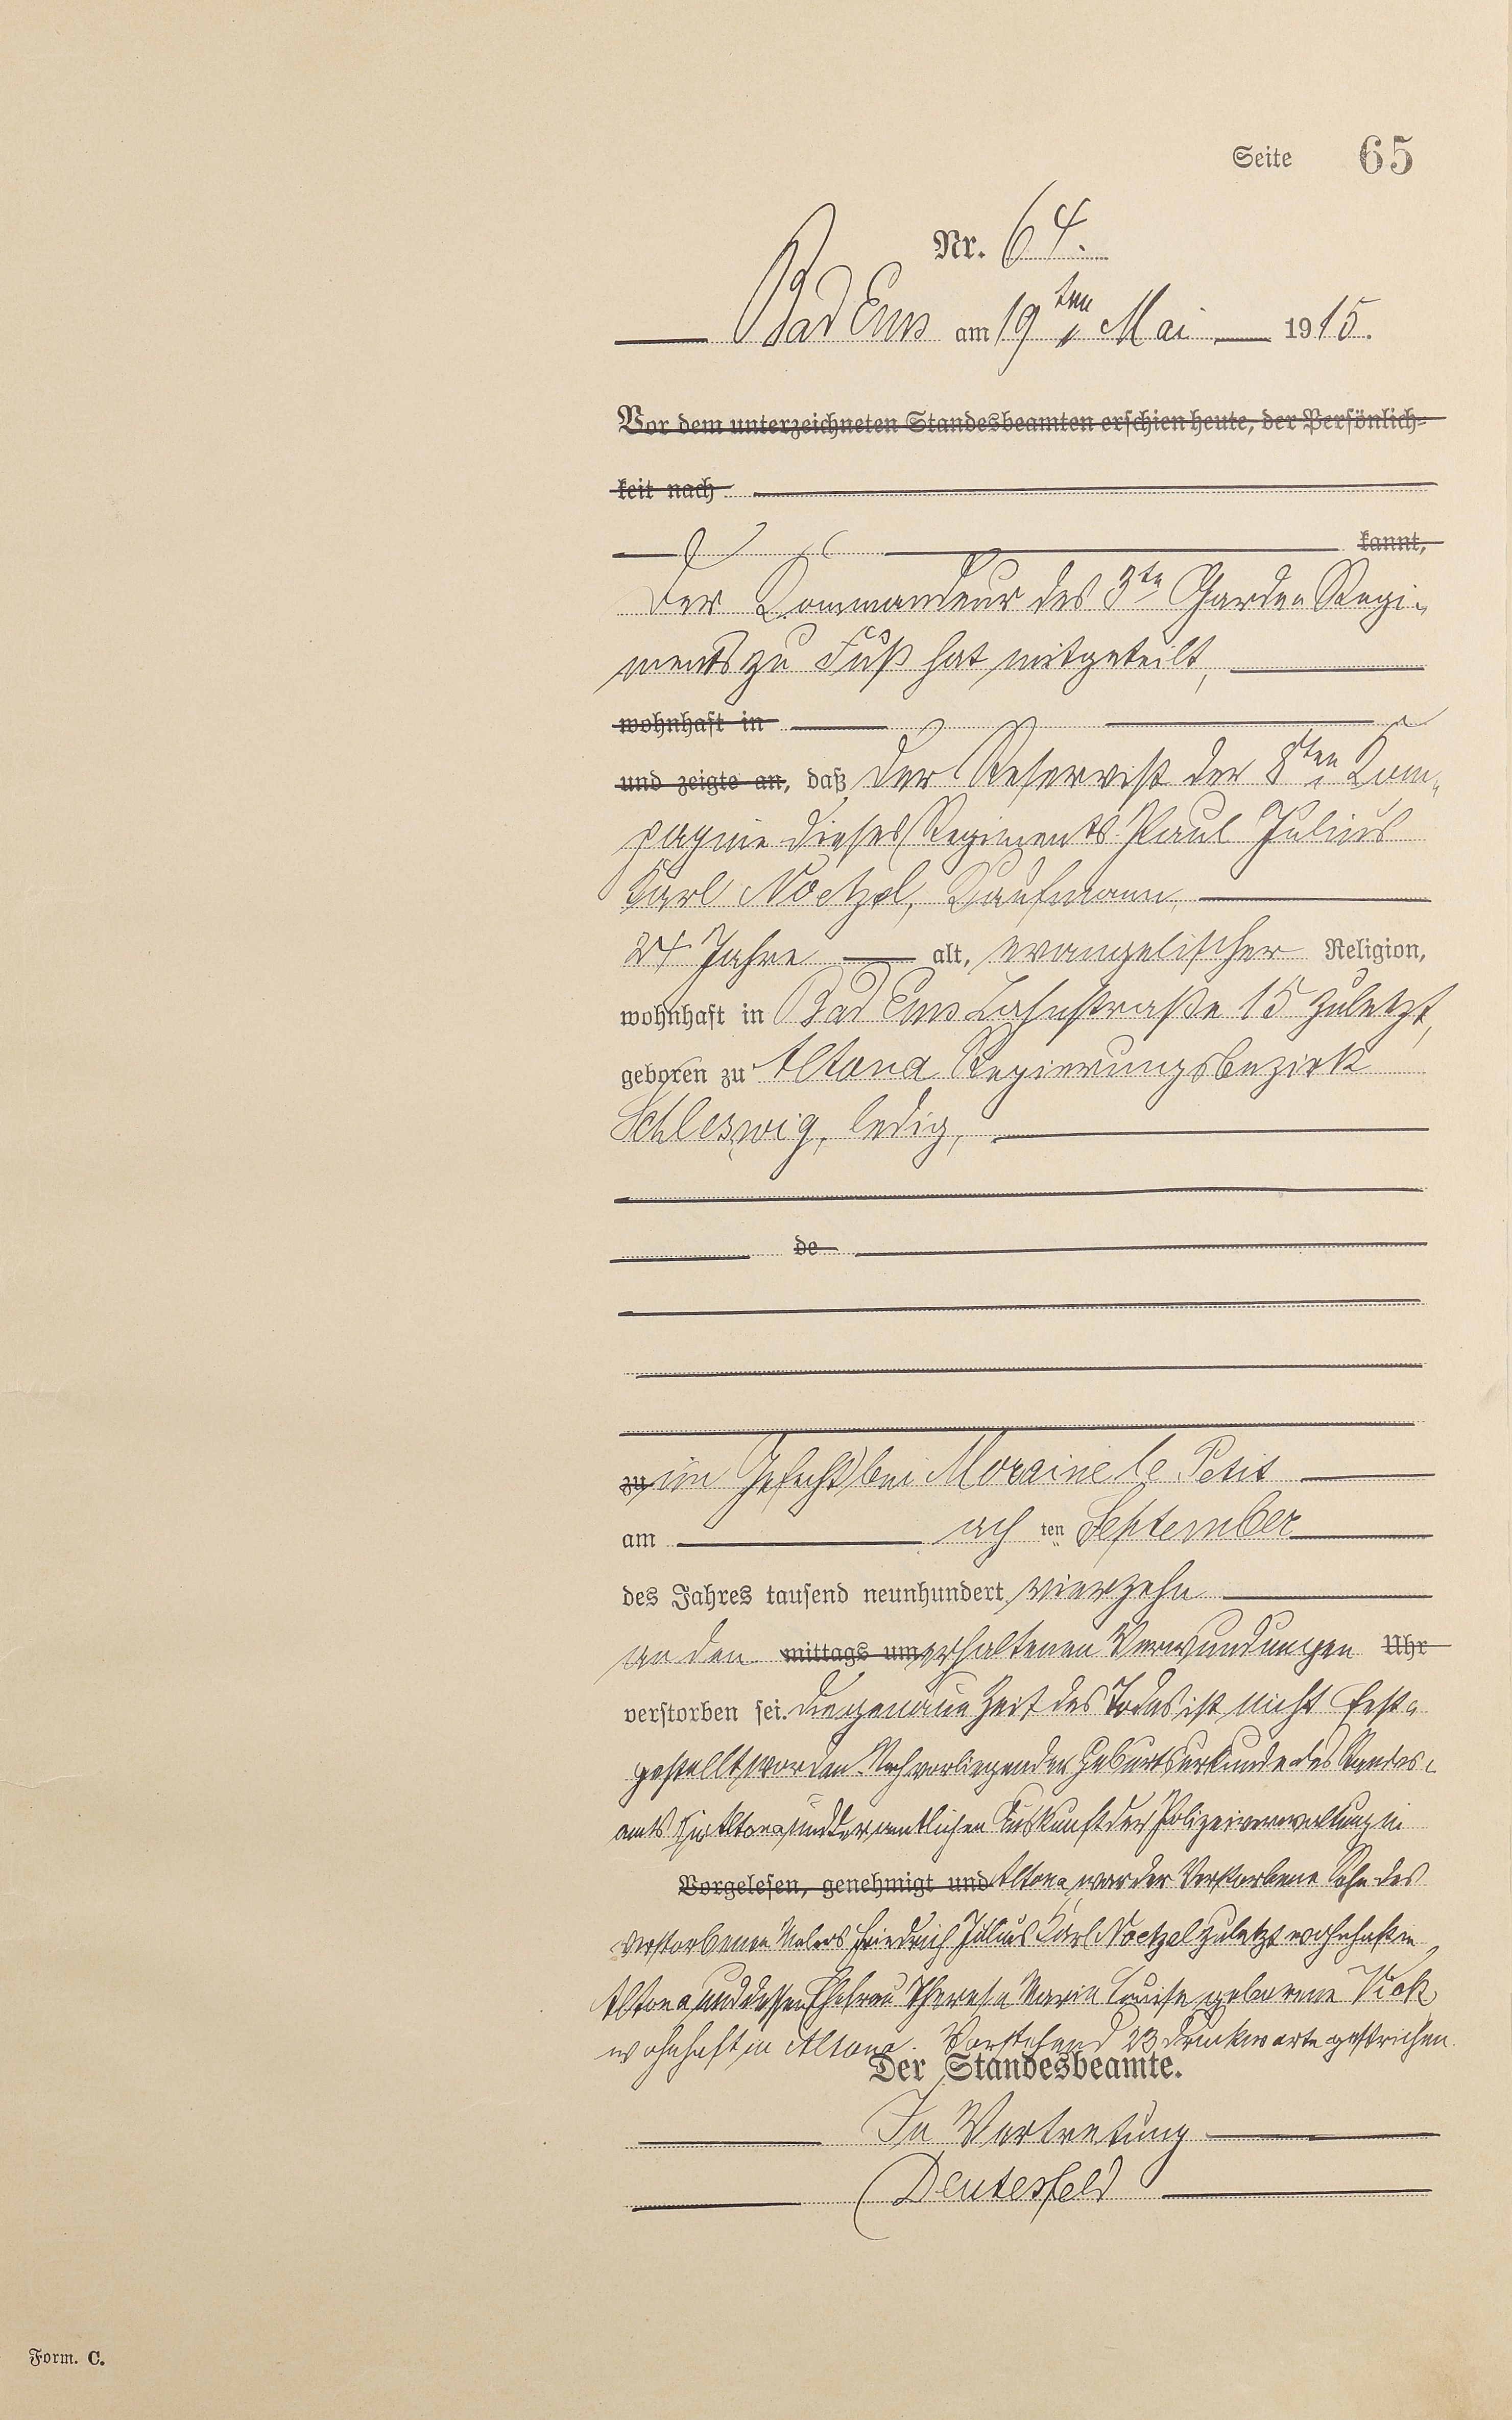 Seite 65
Nr. 64.
Bad Ems am 19ten Mai 1915.
Vor dem unterzeichneten Standesbeamten erschien heute, der Persönlich-
keit nach
kannt,
Der Kommandeur des 3ten Garde-Regi-
ments zu Fuß hat mitgeteilt,
wohnhaft in
und zeigte an, daß der Reservist der 8ten Kom-
pagnie dieses Regiments Paul Julius
Karl Noetzel, Kaufmann,
24 Jahre alt, evangelischer Religion,
wohnhaft in Bad Ems Lahnstraße 15 zuletzt,
geboren zu Altona Regierungsbezirk
Schleswig, ledig,
de
zu im Gefecht bei Moraine le Petit
am ach ten September
des Jahres tausend neunhundert vierzehn
an den mittags um erhaltenen Verwundungen Uhr
verstorben sei. Die genaue Zeit des Todes ist nicht fest-
gestellt worden. Nach vorliegender Geburtsurkunde des Standes-
amts zu Altona und der amtlichen Auskunft der Polizeiverwaltung in
Vorgelesen, genehmigt und Altona war der Verstorbene Sohn des
verstorbenen Malers Friedrich Julius Karl Noetzel zuletzt wohnhaft in
Altona und dessen Ehefrau Therese Marie Louise geborene
wohnhaft in Altona. Vorstehend 23 Druckworte gestrichen.
Der Standesbeamte.
In Vertretung
Deutesfeld
Form. C.